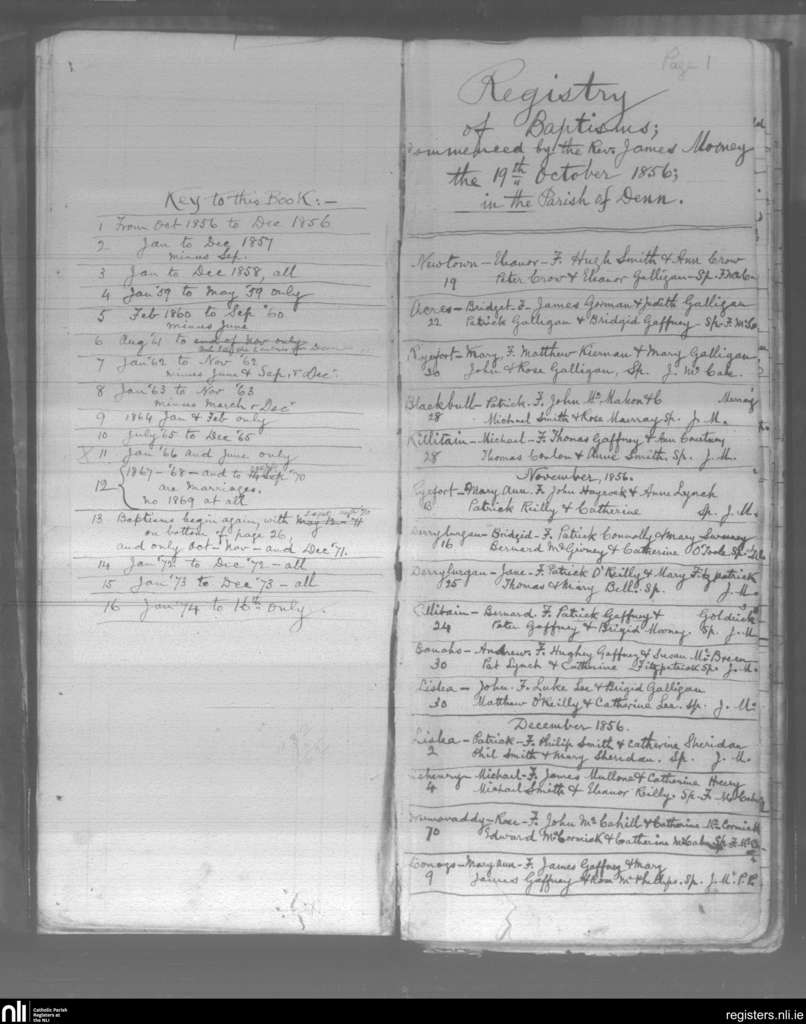 Key to this Book:—
1 From Oct 1856 to Dec 1856
2 Jan to Dec 1857
minus Sep.
3 Jan to Dec 1858, all
4 Jan '59 to May '59 only
5 Feb 1860 to Sep '60
minus June
6 Aug '61 to end of Nov only
7 Jan '62 to Nov '62
minus June & Sep. & Dec.
8 Jan '63 to Nov '63
minus March & Dec
9 1864 Jan & Feb only
10 July '65 to Dec '65
X 11 Jan '66 and June only
12 1867 - '68 - and to Sep '70
are marriages.
no 1869 at all
13 Baptisms begin again, with
on bottom of page 26,
and only Oct - Nov - and Dec '71.
14 Jan '72 to Dec '72 - all
15 Jan '73 to Dec '73 - all
16 Jan '74 to 16th only.
Page 1
Registry
of Baptisms;
commenced by the Rev. James Mooney
the 19th October 1856;
in the Parish of Denn.
Newtown - Eleanor - F. Hugh Smith & Ann Crow
19 Peter Crow & Eleanor Galligan - Sp. F. McCa
Acres - Bridget - F. James Gorman & Judith Galligan
22 Patrick Galligan & Bridgid Gaffney - Sp. F. McCa
Ryefort - Mary. F. Matthew Kiernan & Mary Galligan
20 John & Rose Galligan, Sp. J. McCabe.
Blackbull - Patrick. F. John McMahon & C Murray
28 Michael Smith & Rose Murray Sp. J. M.
Killitain - Michael - F. Thomas Gaffney & Ann Courtney
28 Thomas Conlon & Anne Smith. Sp. J. M.
November, 1856.
Ryefort - Mary Ann. F. John Haycock & Anne Lynch
13 Patrick Reilly & Catherine Sp. J. M.
Derrylurgan - Bridgid - F. Patrick Connolly & Mary Sweeney
16 Bernard McGivney & Catherine O'Toole Sp.
Derrylurgan - Jane - F. Patrick O'Reilly & Mary Fitzpatrick
25 Thomas & Mary Bell. Sp. J. M.
Killitain - Bernard. F. Patrick Gaffney & Goldrick
24 Peter Gaffney & Brigid Mooney. Sp. J. M.
Andrew. F. Hughey Gaffney & Susan McBreen
30 Pat Lynch & Catherine Fitzpatrick Sp. J. M.
Liskea - John. F. Luke Lee & Brigid Galligan
30 Matthew O'Reilly & Catherine Lee. Sp. J. M.
December 1856.
Liskea - Patrick - F. Philip Smith & Catherine Sheridan
2 Phil Smith & Mary Sheridan. Sp. J. M.
Michael - F. James Mullone & Catherine
4 Michael Smith & Eleanor Reilly. Sp. F. McCabe
Drumavaddy - Rose - F. John McCahill & Catherine McCormick
Edward McCormick & Catherine McCabe Sp.
Mary Ann - F. James Gaffney & Mary
9 James Gaffney & Rose McPhillips. Sp. J. M. P.P.
nli
Catholic Parish
Registers at
the NLI
registers.nli.ie